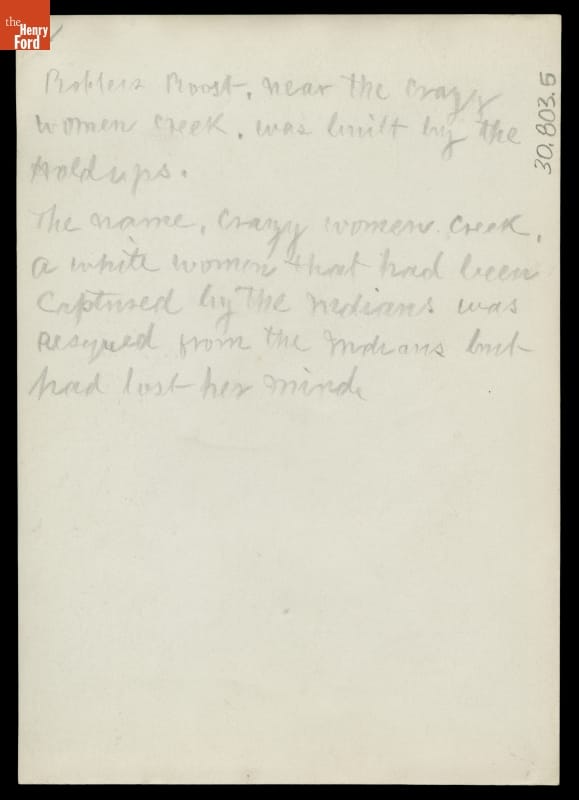 the
Henry
Ford
30.803.5
Robbers Roost, near the Crazy
women creek, was built by the
Holdups.
The name, Crazy women Creek,
a white women that had been
Captured by the Indians was
Resqued from the Indians but
had lost her mind